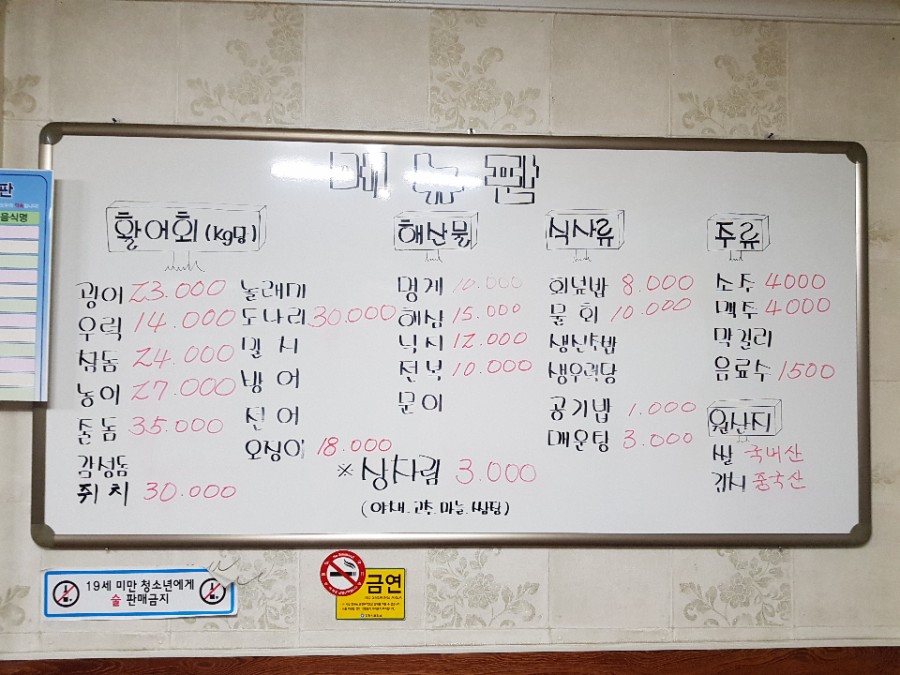 메뉴판
활어회 (kg당)
광어 23.000
우럭 14.000
참돔 24.000
농어 27.000
돌돔 35.000
감성돔
쥐치 30.000
놀래미
도다리 30.000
밀시
방어
전어
오징어 18.000
해산물
멍게 10.000
해삼 15.000
낙지 12.000
전복 10.000
문어
식사류
회덮밥 8.000
물회 10.000
생선초밥
생우럭탕
공기밥 1.000
매운탕 3.000
주류
소주 4000
맥주 4000
막걸리
음료수 1500
원산지
쌀 국내산
김치 중국산
※ 상차림 3.000
(야채. 고추. 마늘. 쌈장)
판
음식명
19세 미만 청소년에게
술 판매금지
금연